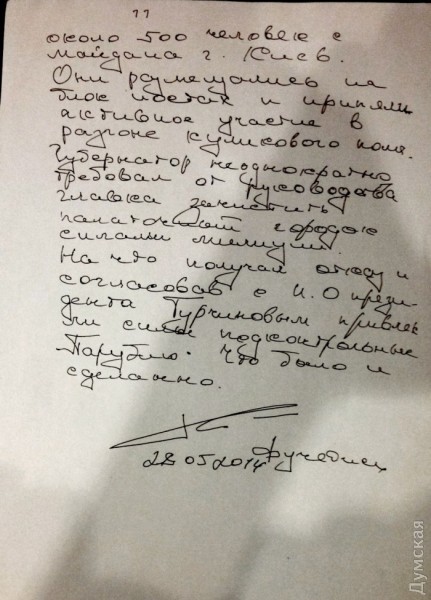 11
около 500 человек с
майдана г. Киев.
Они размещались на
блок постах и приняли
активное участие в
разгоне куликового поля.
Губернатор неоднократно
требовал от руководства
главка зачистить
палаточный городок
силами милиции.
На что получал отказ и
согласовав с И.О прези
дента Турчиновым привлек
ли силы подконтрольные
Парубию. Что было и
сделанно.
28 05 2014 Фучеджи
Думская